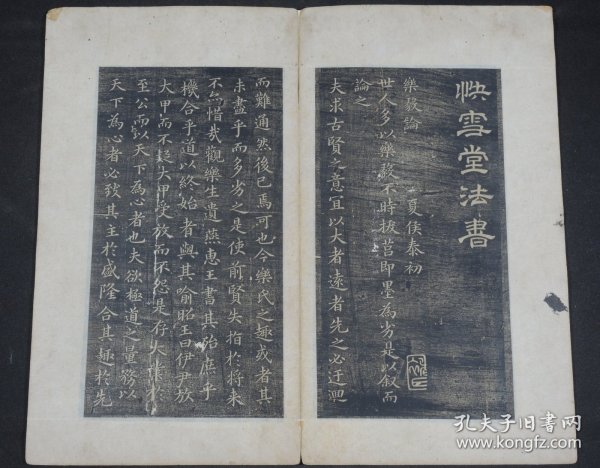 快雪堂法書
樂毅論
夏侯泰初
世人多以樂毅不時拔莒即墨為劣是以叙而
論之
夫求古賢之意宜以大者遠者先之必迂迴
而難通然後已焉可也今樂氏之趣或者其
未盡乎而多劣之是使前賢失指於將來
不亦惜哉觀樂生遺燕惠王書其殆庶乎
機合乎道以終始者與其喻昭王曰伊尹放
大甲而不疑大甲受放而不怨是存大業於
至公而以天下為心者也夫欲極道之量務以
天下為心者必致其主於盛隆合其趣於先
孔夫子旧书网
www.kongfz.com